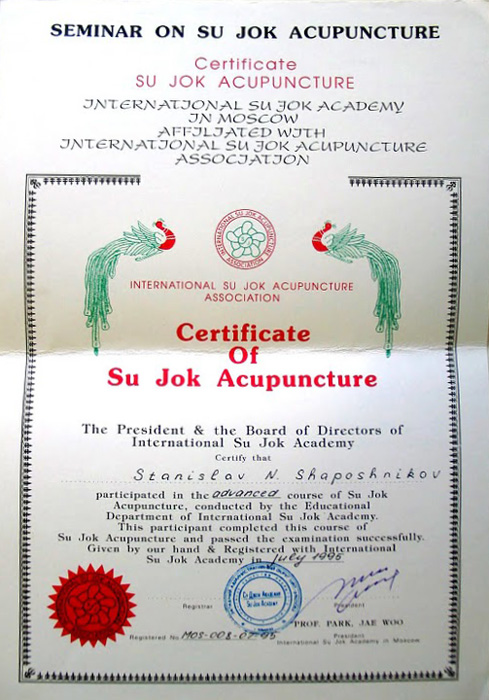 SEMINAR ON SU JOK ACUPUNCTURE
Certificate
SU JOK ACUPUNCTURE
INTERNATIONAL SU JOK ACADEMY
IN MOSCOW
AFFILIATED WITH
INTERNATIONAL SU JOK ACUPUNCTURE
ASSOCIATION
INTERNATIONAL SU JOK ACUPUNCTURE
ASSOCIATION
INTERNATIONAL SU JOK ACUPUNCTURE
ASSOCIATION
Certificate
Of
Su Jok Acupuncture
The President & the Board of Directors of
International Su Jok Academy
Certify that
Stanislav N. Shaposhnikov
participated in the advanced course of Su Jok
Acupuncture, conducted by the Educational
Department of International Su Jok Academy.
This participant completed this course of
Su Jok Acupuncture and passed the examination successfully.
Given by our hand & Registered with International
Su Jok Academy in July 1995
Su Jok Academy
Registrar
President
PROF. PARK, JAE WOO
Registered No. MOS-008-07-95
President
International Su Jok Academy in Moscow